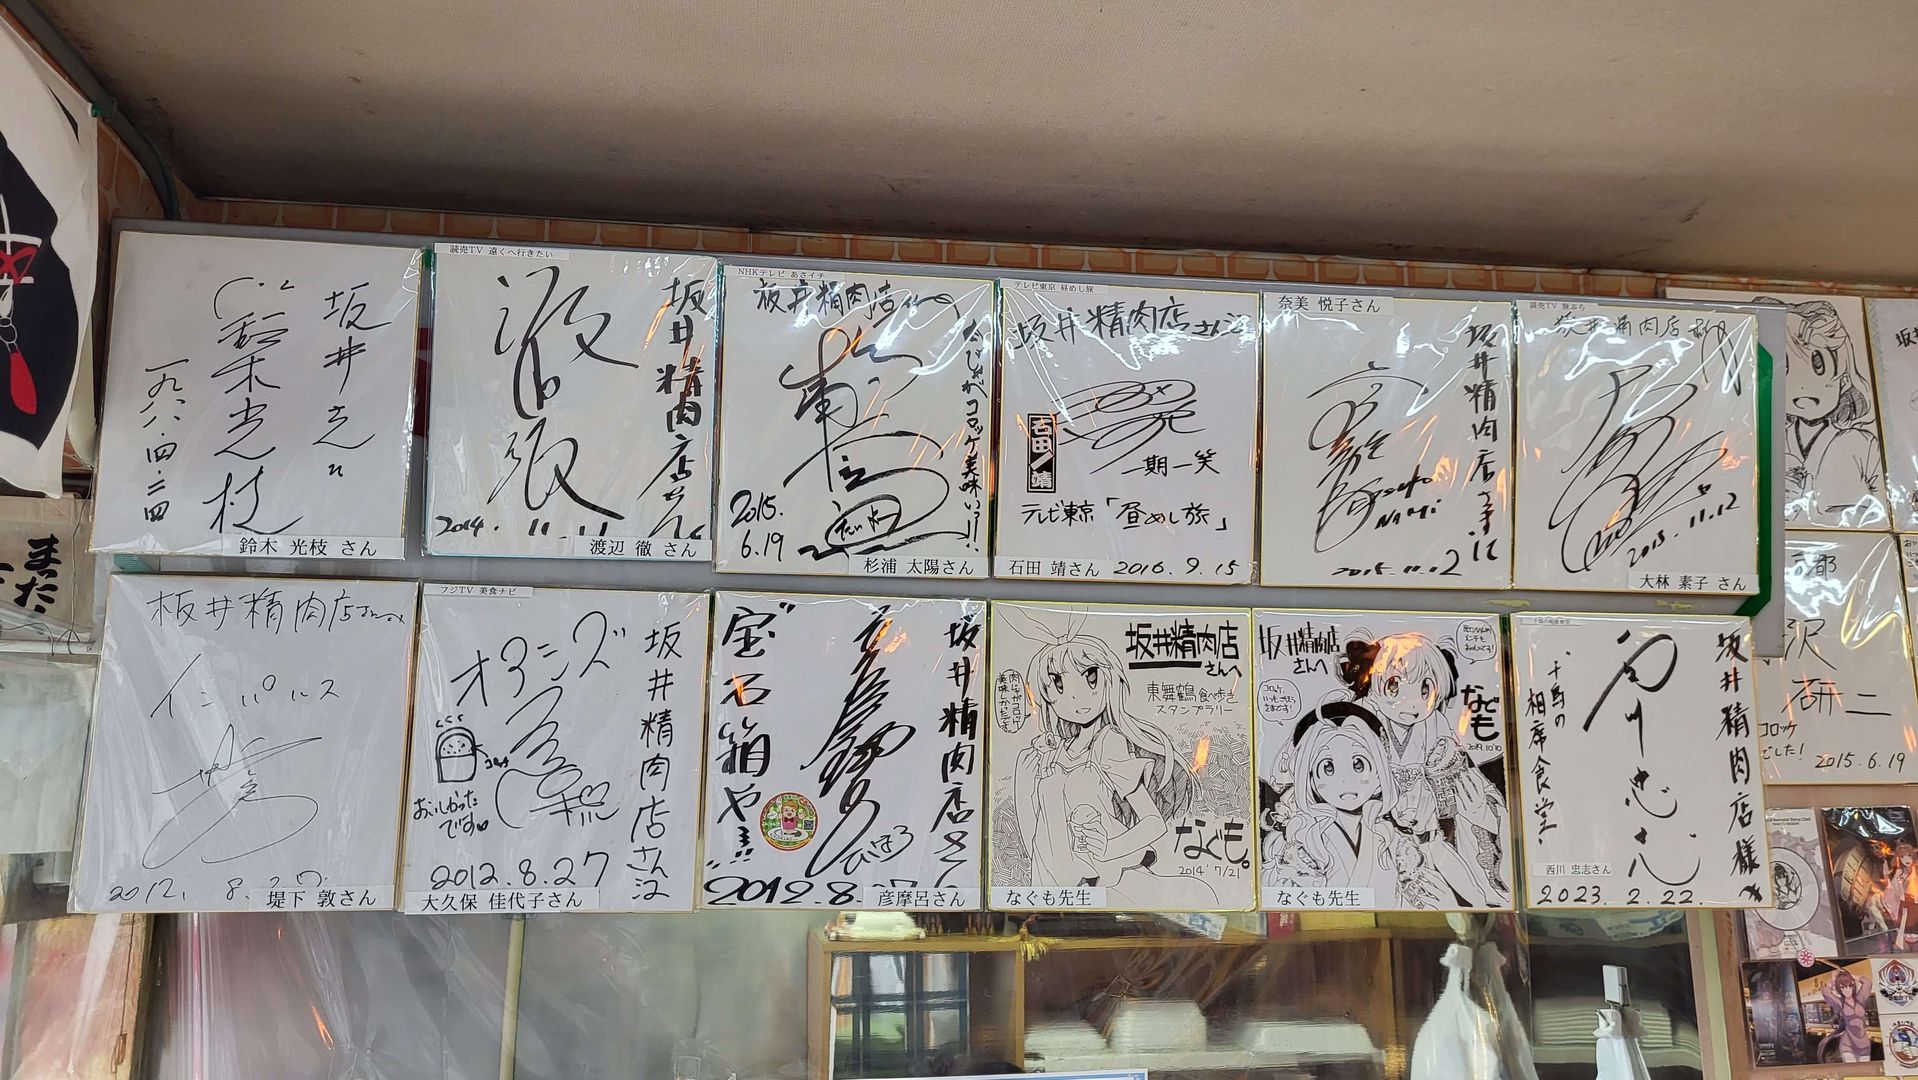 坂井さん江
鈴木光枝
一九八八.四.二四
鈴木 光枝 さん
読売TV 遠くへ行きたい
坂井精肉店さん江
2014. 11. 11
渡辺 徹 さん
NHKテレビ あさイチ
坂井精肉店
肉じゃがコロッケ美味いっ!!
2015.
6.19
杉浦 太陽さん
テレビ東京 昼めし旅
坂井精肉店さん江
石田靖
一期一笑
テレビ東京「昼めし旅」
石田 靖さん
2016. 9. 15
奈美 悦子さん
坂井精肉店さま江
NAMI
2015. 11. 12
読売TV
坂井精肉店
2015. 11. 12
大林 素子 さん
坂井精肉店さんへ
インパルス
2012. 8. 27
堤下 敦さん
フジTV 美食ナビ
坂井精肉店さん江
オアシズ
コロッケ
おいしかった
です
2012.8.27
大久保 佳代子さん
坂井精肉店さん江
宝石箱や
ひこまろ
2012. 8.
彦摩呂さん
坂井精肉店
さんへ
東舞鶴食べ歩き
スタンプラリー
肉じゃがコロッケ
美味しかったです
なぐも。
2014 7/21
なぐも先生
坂井精肉店
さんへ
コロッケ、
なぐも
2019.10.10
なぐも先生
坂井精肉店様へ
西川忠志
千鳥の
相席食堂
西川 忠志さん
2023. 2. 22.
京都
沢
研二
コロッケ
でした!
2015.6.19
また